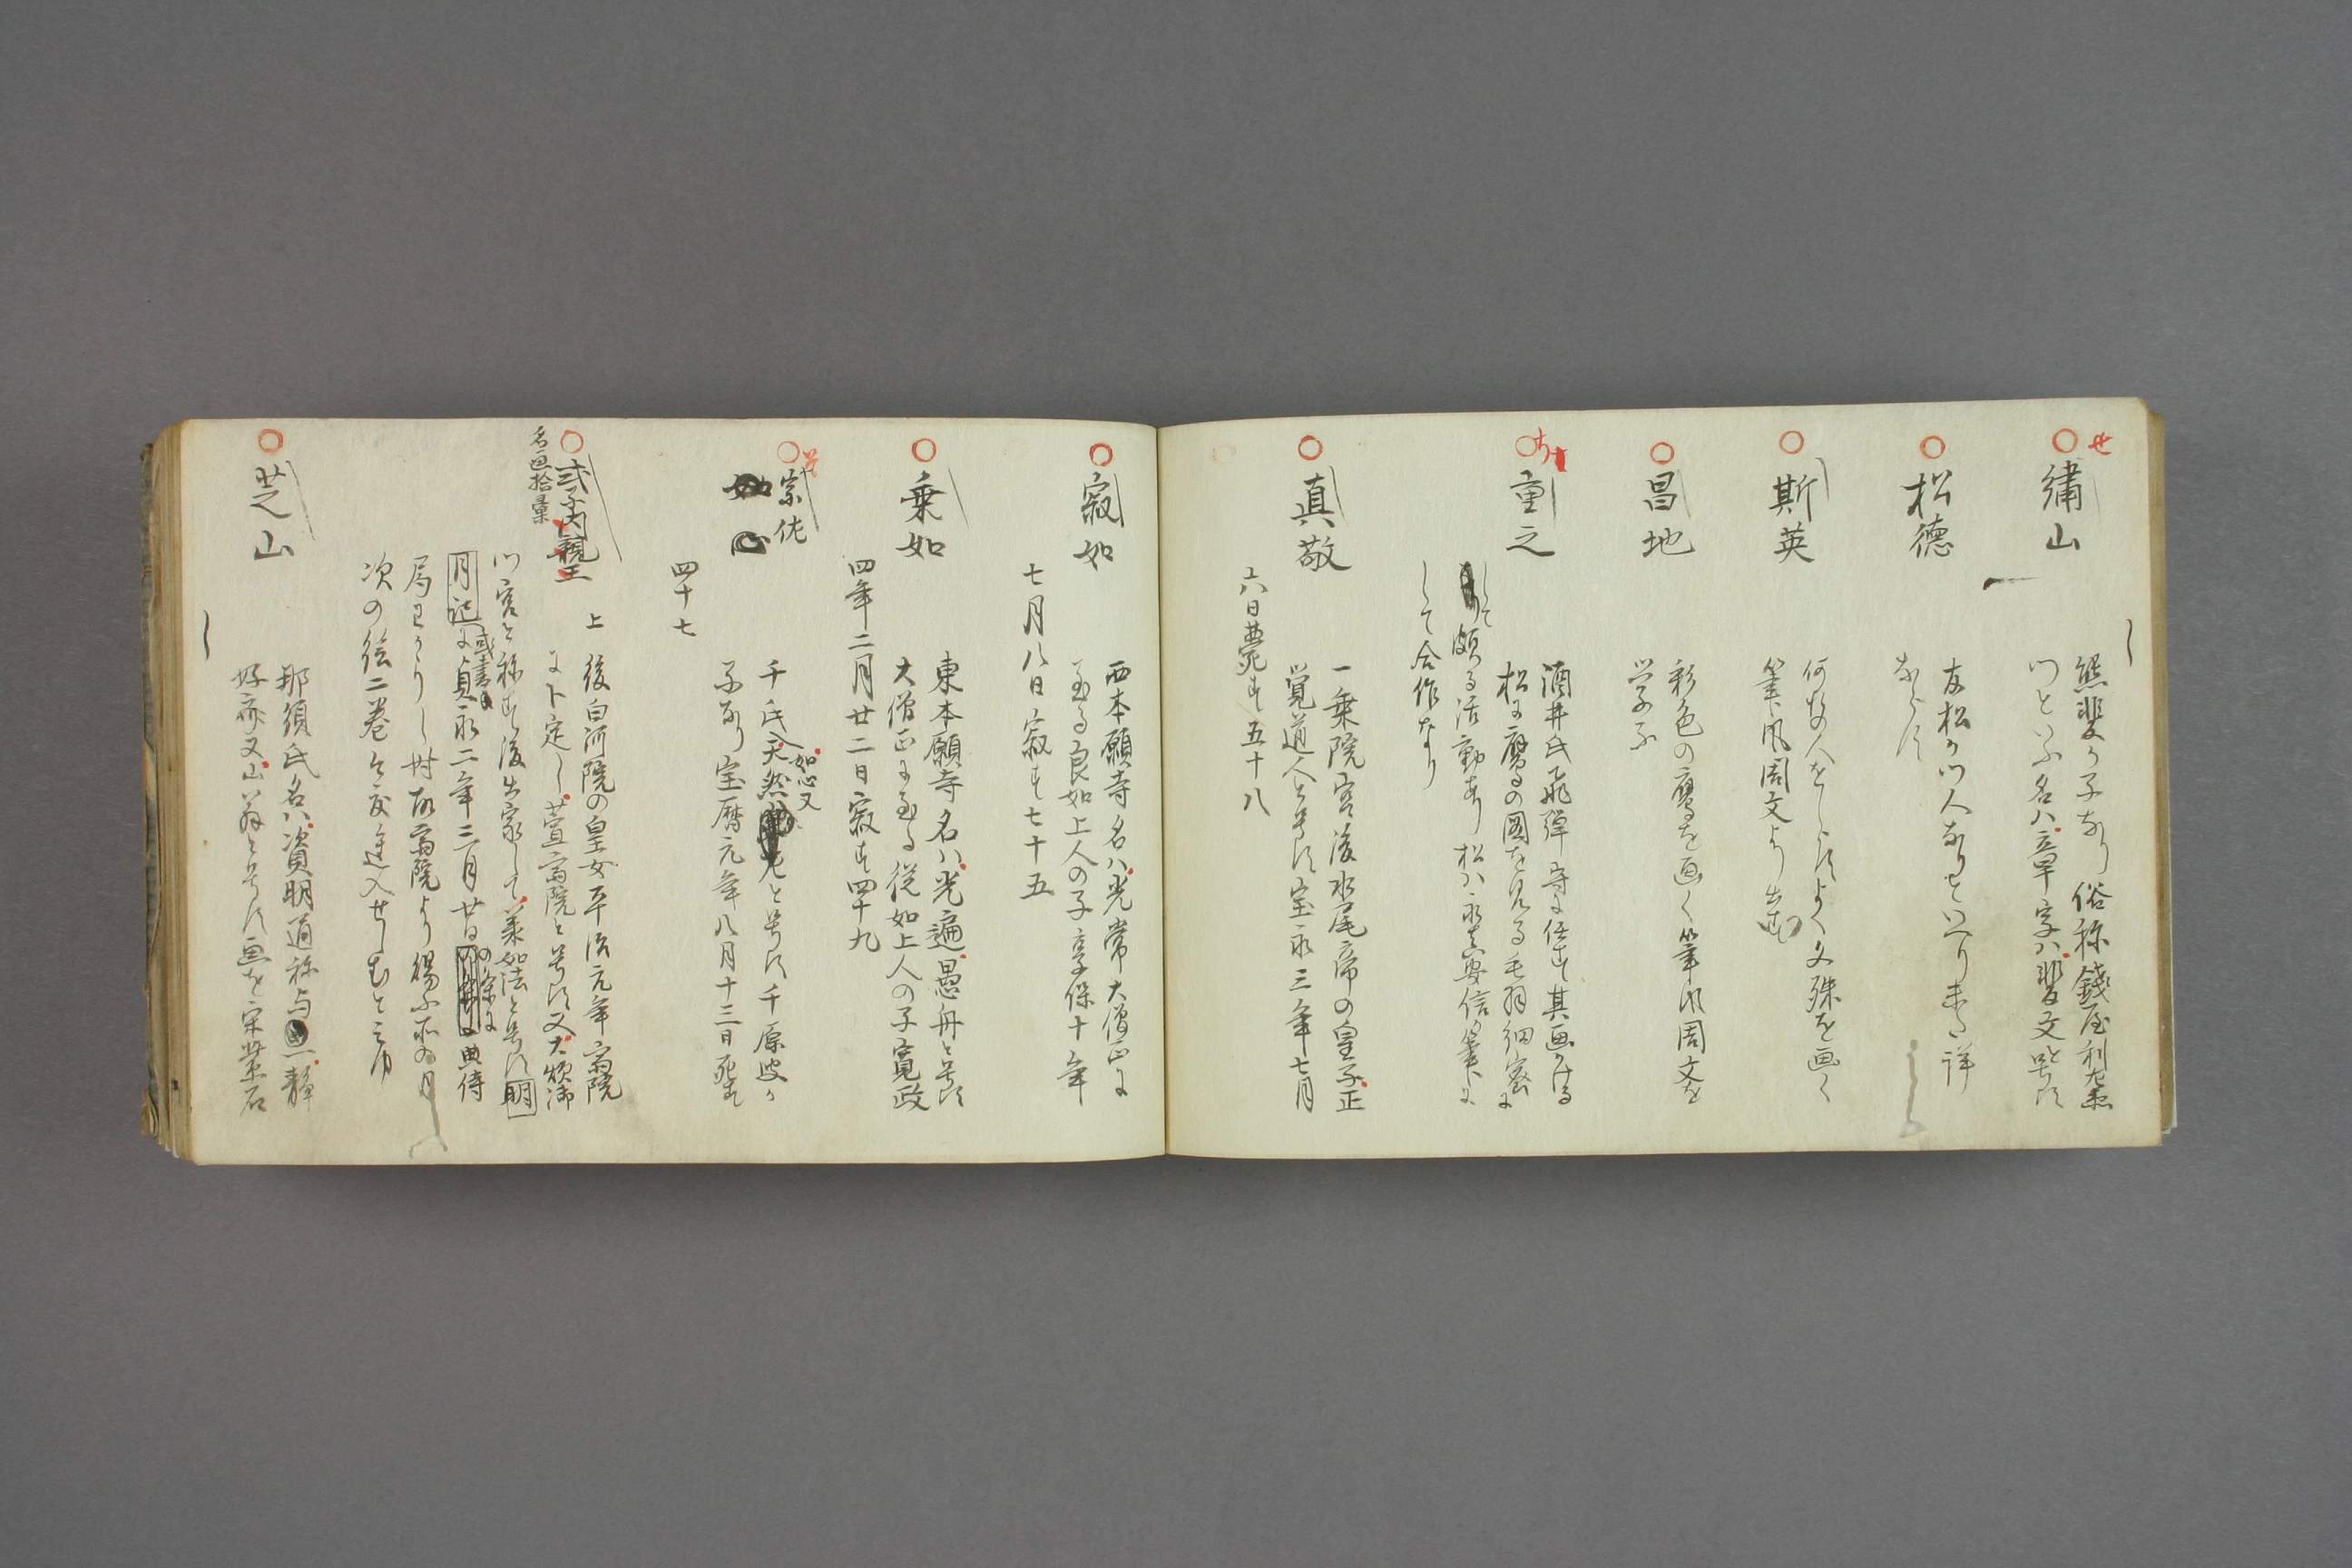 せ
繍山
熊斐の子なり俗称錢屋利左衛
門といふ名ハ章字ハ斐文と号す
松德
友松の門人なりといへり未タ詳
ならす
斯英
何妙の人をしらすよく文殊を画く
筆風周文より出
昌地
彩色の鷹を画く筆法周文を
学ふ
重之
酒井氏飛弾守に任す其画ける
松に鷹の図を見る毛羽細密に
して
頗る活動あり松ハ永真安信の筆に
して合作なり
真敬
一乗院宮後水尾帝の皇子正
覚道人と号す宝永三年七月
六日薨す五十八
寂如
西本願寺名ハ光常大僧正に
至る良如上人の子享保十年
七月八日寂す七十五
乗如
東本願寺名ハ光遍愚舟と号す
大僧正に至る従如上人の子寛政
四年二月廿二日寂す四十九
宗佐
千氏
如心又
天然と号す千原叟の
子なり宝暦元年八月十三日死す
四十七
式子内親王
名画拾彙
上
後白河院の皇女平治元年斎院
に卜定し萱斎院と号す又大炊御
門宮と称す後出家して承如法と号す明
月記に
或書
貞永二年三月廿日
の条に
典侍
局
斎院より賜ふ所の月
次の絵二巻
進入せしむと
芝山
那須氏名ハ資明通称与一静
好斎又山翁と号す画を宋紫石